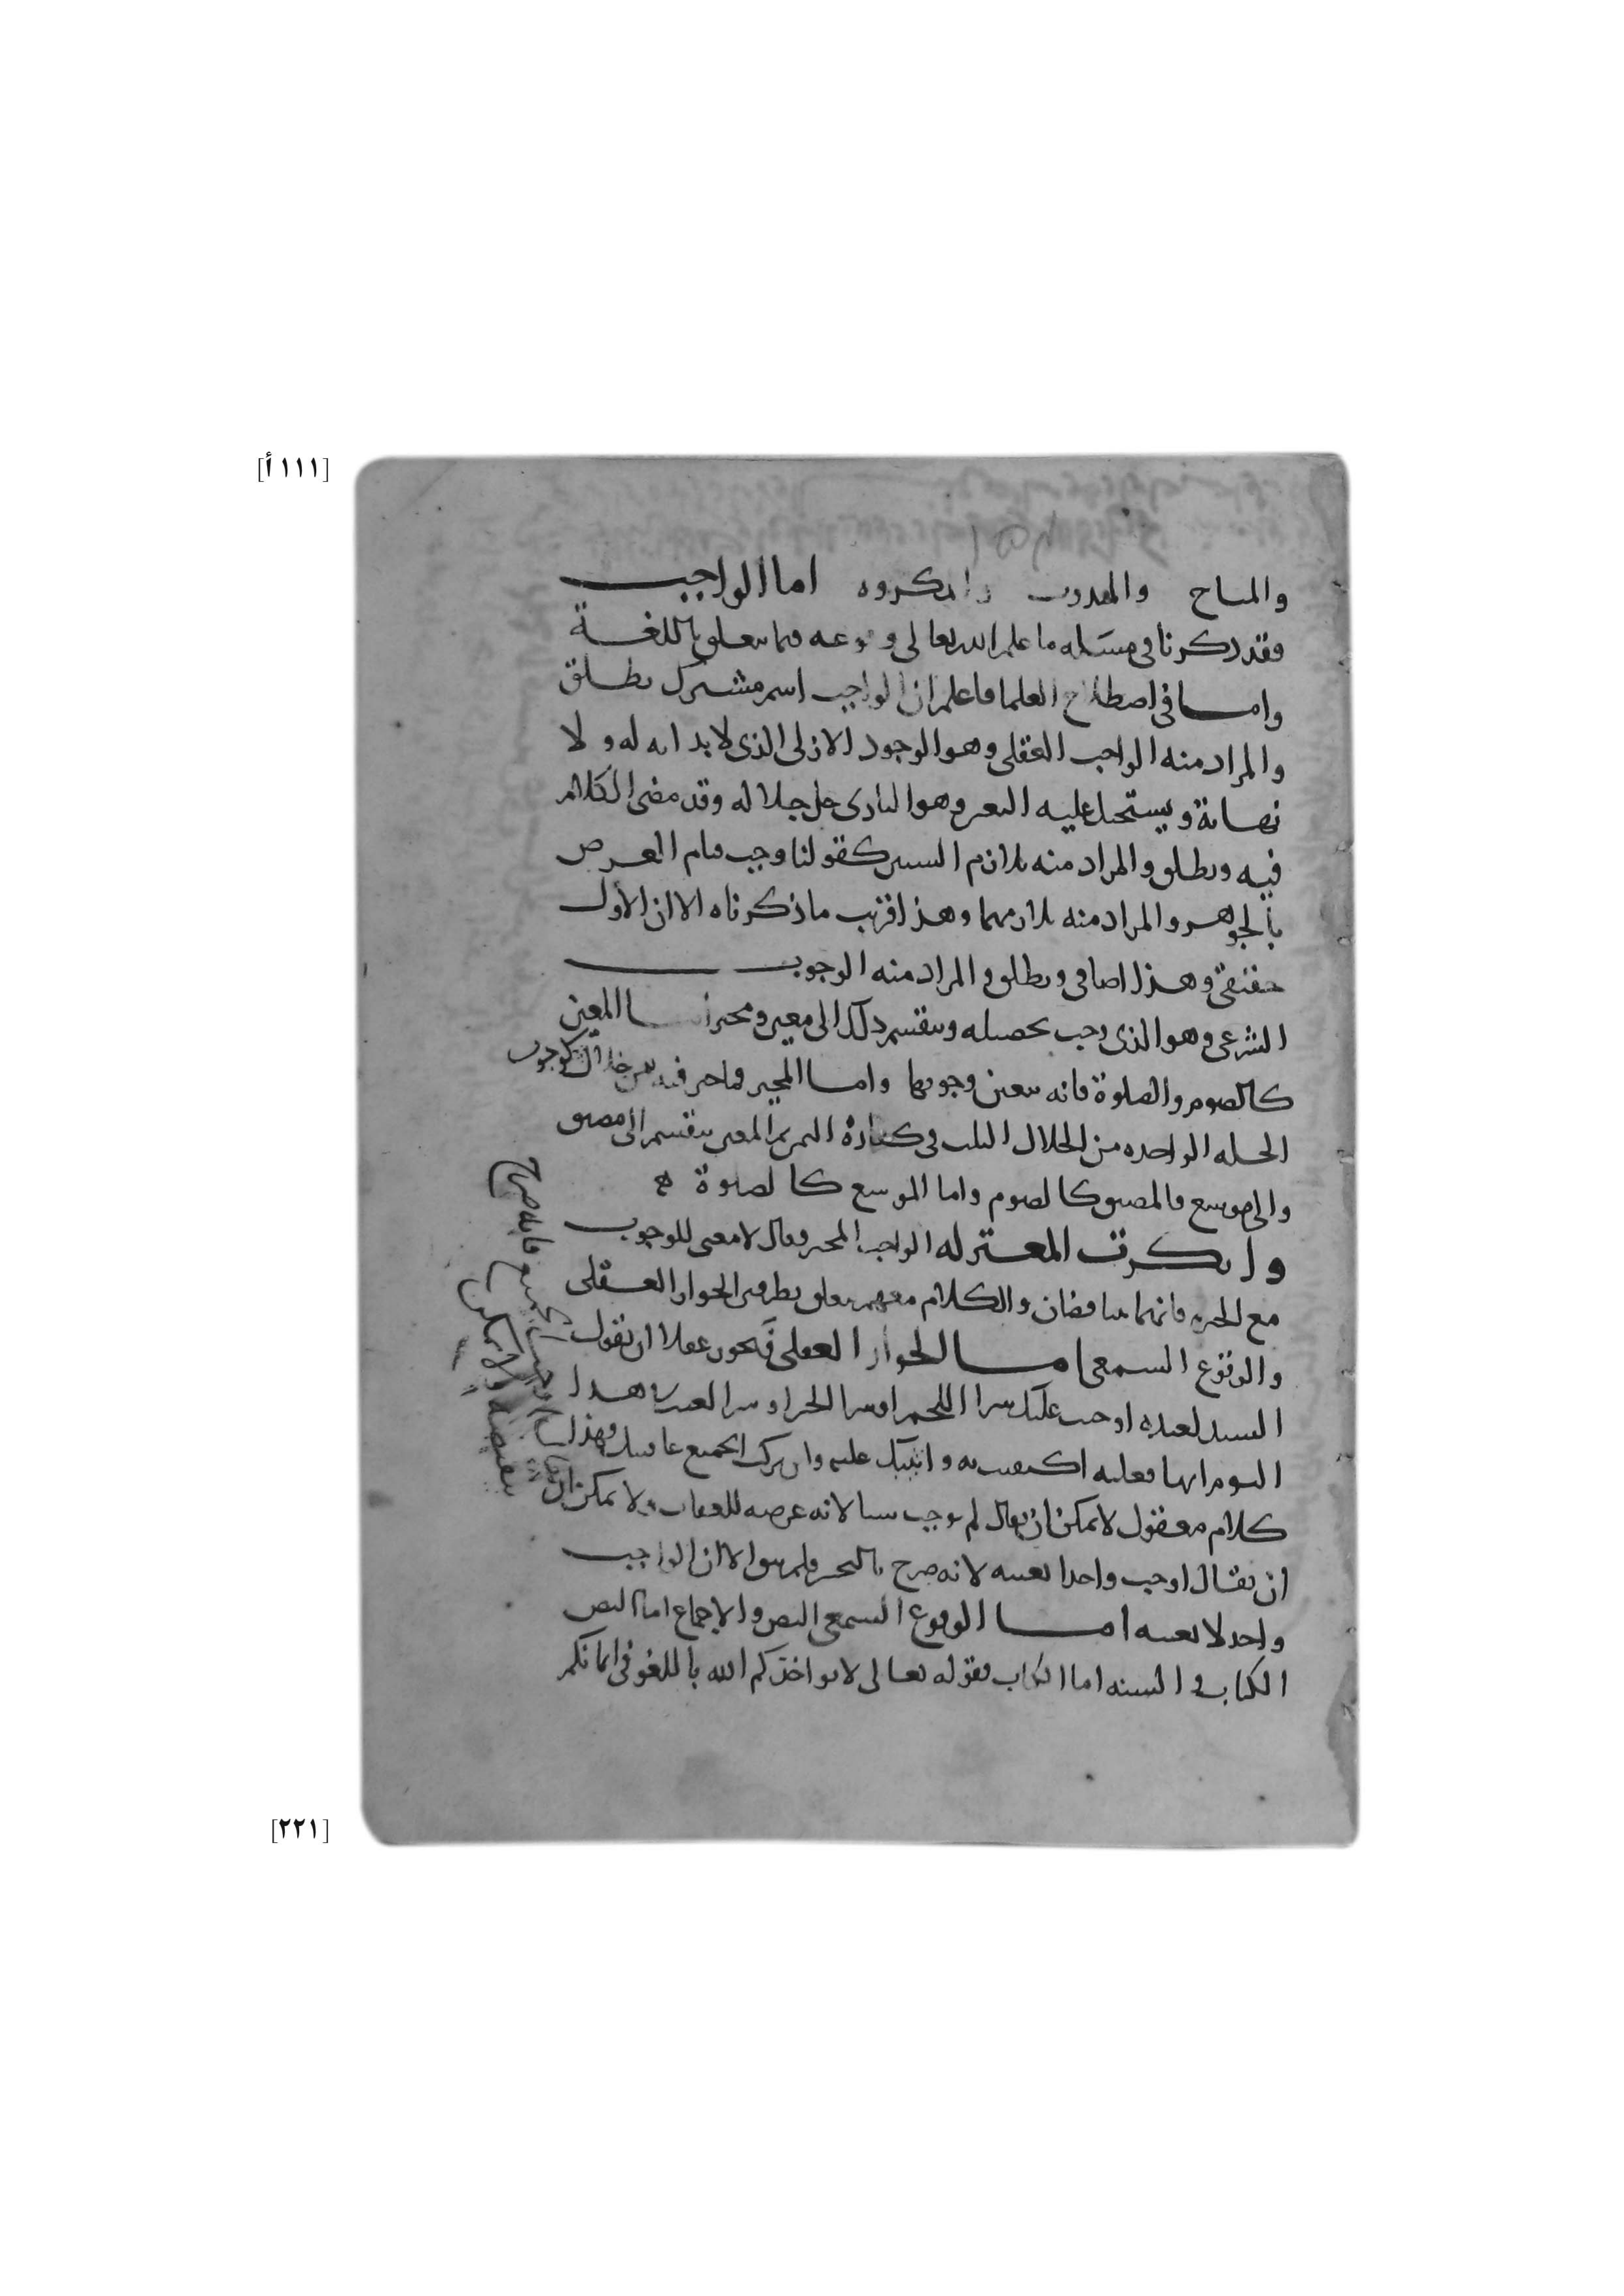 [١١١ أ]
والمباح والمندوب والمكروه اما الواجب
فقد ذكرنا في مسئله ما علم الله تعالى وقوعه فيما يتعلق باللغة
واما في اصطلاح العلما فاعلم ان الواجب اسم مشترك يطلق
والمراد منه الواجب العقلي وهو الوجود الازلي الذي لا بداية له ولا
نهاية ويستحيل عليه التغير وهو البارى جل جلاله وقد مضى الكلام
فيه ويطلق والمراد منه تلازم كقولنا وجب قيام العرض
بالجوهر والمراد منه تلازمهما وهذا اقرب ما ذكرناه الا ان الأول
حقيقي وهذا اضافي ويطلق والمراد منه الوجوب
الشرعي وهو الذي وجب تحصيله وينقسم ذلك الى معين ومخير أما المعين
كالصوم والصلوة فانه يتعين وجوبهما واما المخير فما خير فيه بين خلال كوجوب
الخصله الواحده من الخلال الثلث في كفارة اليمين ثم المعين ينقسم الى مضيق
والى موسع فالمضيق كالصوم واما الموسع كالصلوة
وانكرت المعتزله الواجب المخير وقال لا معنى للوجوب
مع الخيره فانهما متناقضان والكلام معهم يتعلق بطرفين الجواز العقلي
والوقوع السمعي اما الجواز العقلي فيجوز عقلا ان يقول
السيد لعبده اوجبت عليك شرا اللحم او شرا الخبز او شرا العنب هذا
اليوم ايها فعلته اكتفيت به واثيبك عليه وان تركت الجميع عاقبتك وهذا
كلام معقول لا يمكن ان يقال لم يوجب شيا لانه عرضه للعقاب ولا يمكن ان
ان يقال اوجب واحدا بعينه لانه صرح بالتخيير فلم يبق الا ان الواجب
واحد لا بعينه اما الوقوع السمعي النص والاجماع اما النص
الكتاب والسنه اما الكتاب فقوله تعالى لا يواخذكم الله باللغو في ايمانكم
الجميع فانه صرح
بنقيضه ولا يمكن
[٢٢١]